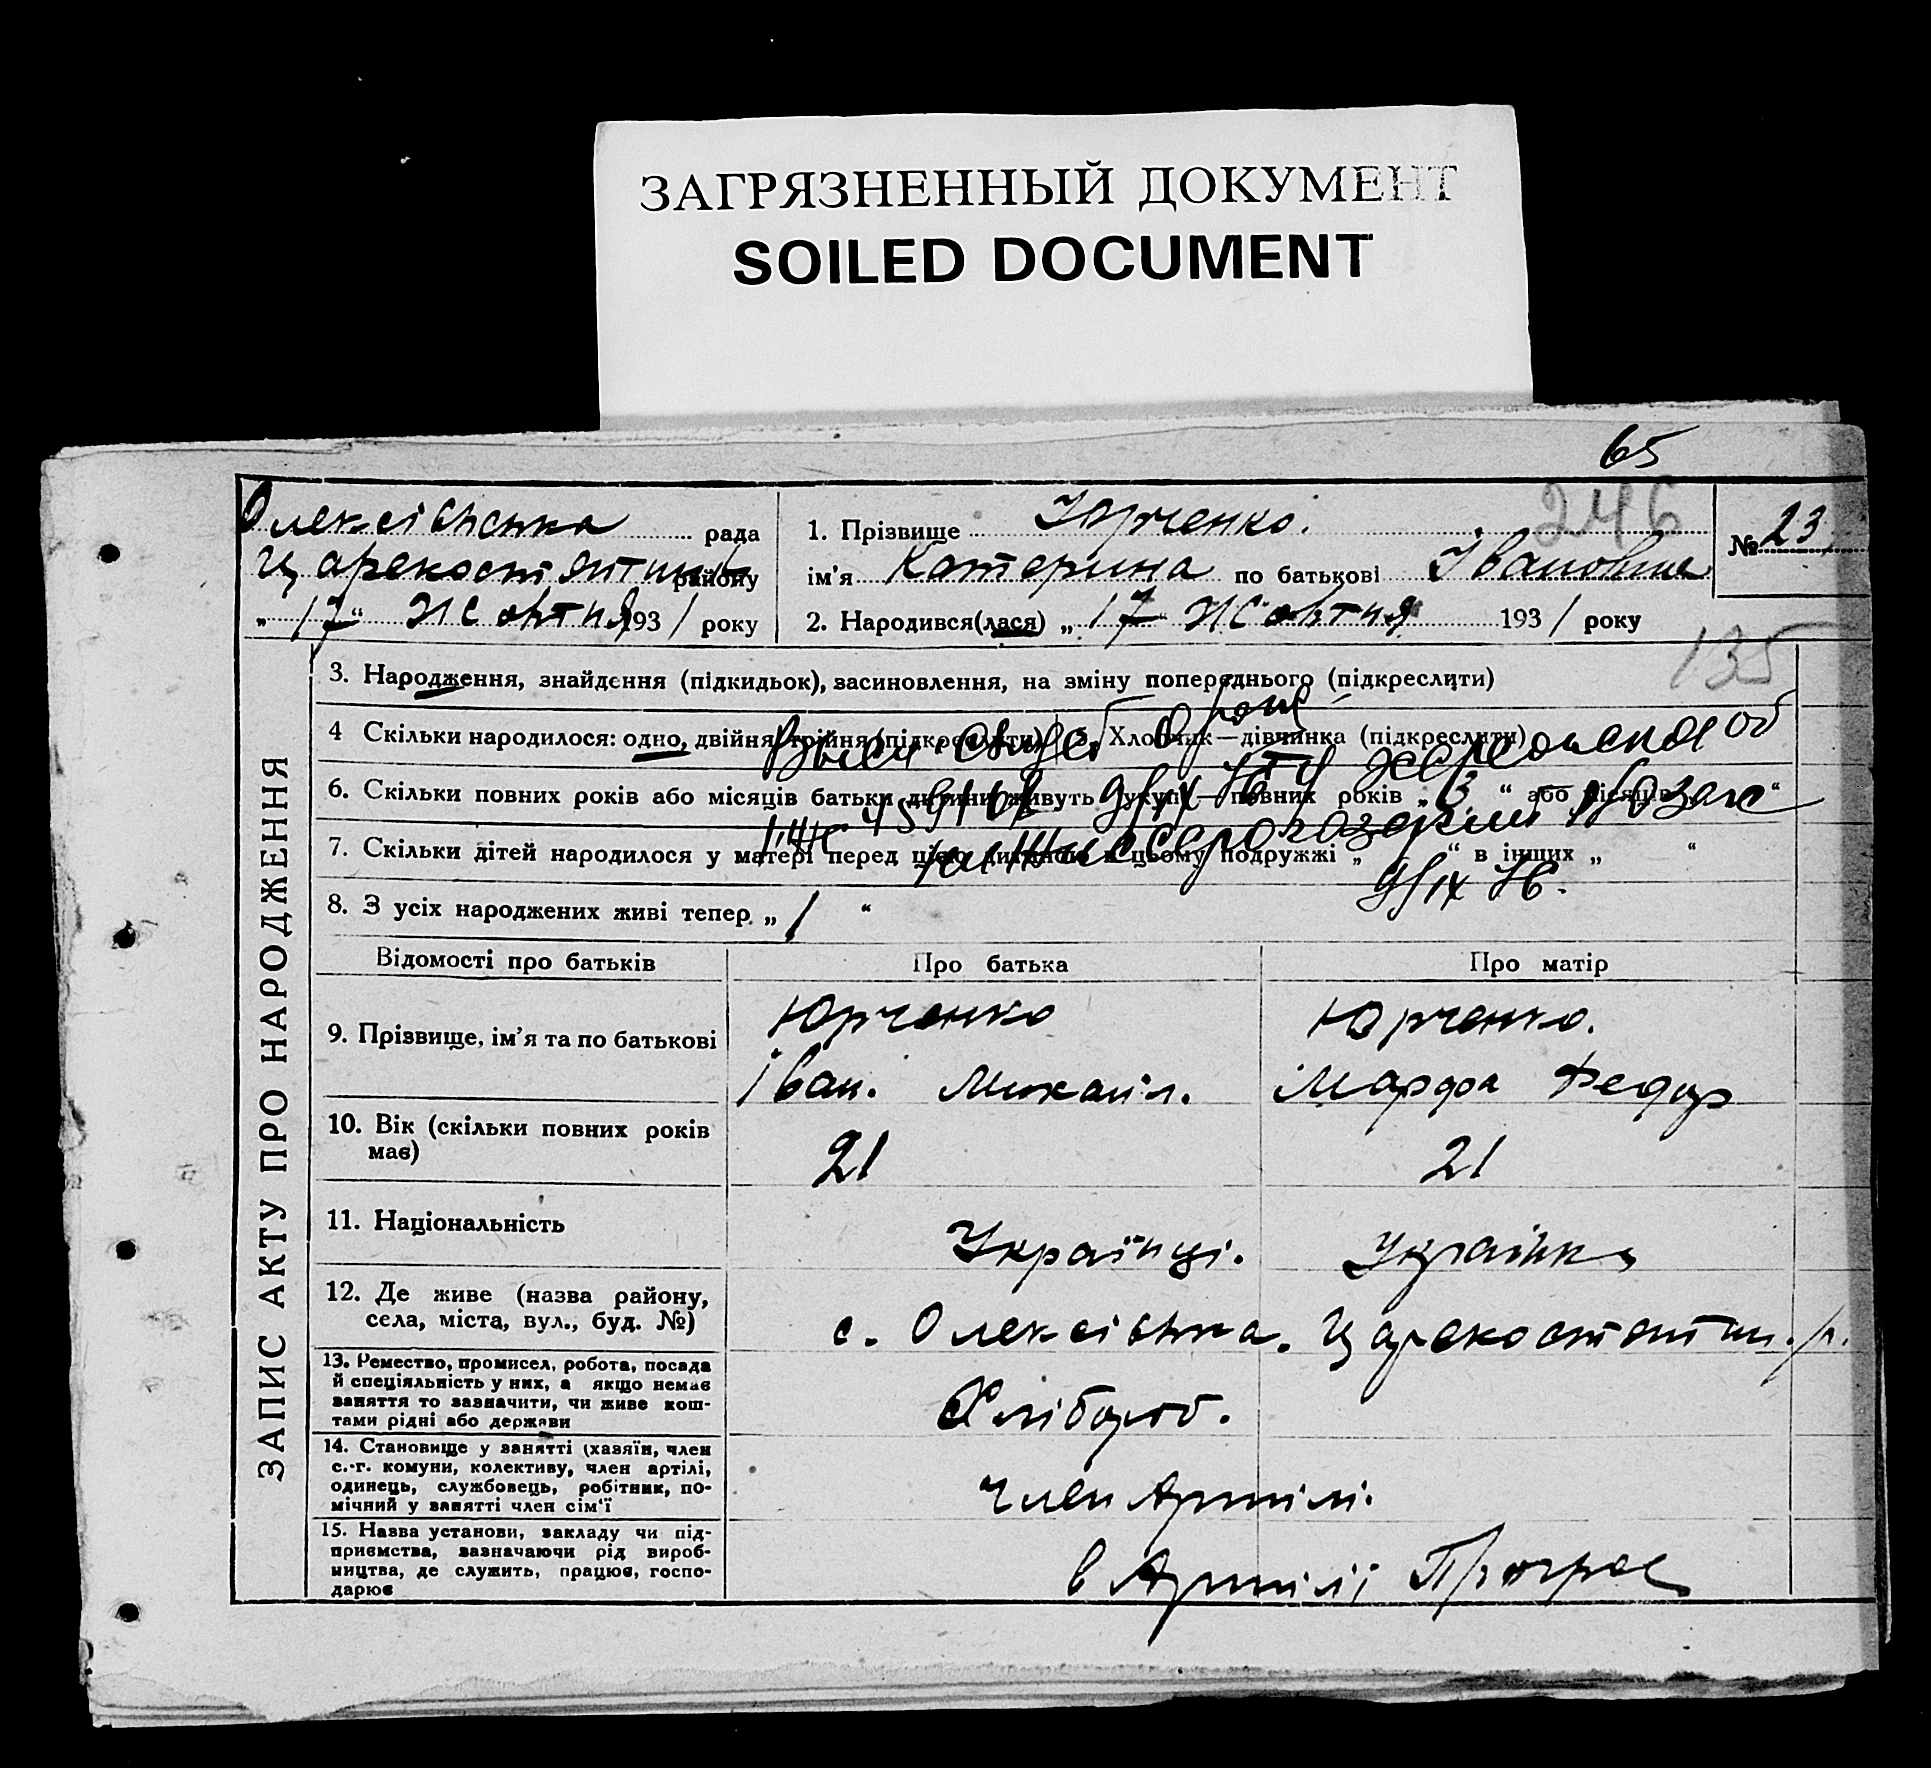 ЗАГРЯЗНЕННЫЙ ДОКУМЕНТ
SOILED DOCUMENT
65
246
Олексіївська рада
Царекостянтин району
„17“ Жовтня 1931 року
1. Прізвище Юрченко.
ім'я Катерина по батькові Івановна
2. Народився(лася) „17“ Жовтня 1931 року
№ 23
135
ЗАПИС АКТУ ПРО НАРОДЖЕННЯ
3. Народження, знайдення (підкидьок), засиновлення, на зміну попереднього (підкреслити)
4 Скільки народилося: одно, двійня, трійня (підкреслити) 5. Хлопчик—дівчинка (підкреслити)
6. Скільки повних років або місяців батьки дитини живуть укупі — повних років „3“ або місяців „ “
7. Скільки дітей народилося у матері перед цією дитиною в цьому подружжі „ “ в інших „ “
8. З усіх народжених живі тепер „1“
Херсонской об
9/IX 76.
Відомості про батьків Про батька Про матір
9. Прізвище, ім'я та по батькові
Юрченко Юрченко.
Іван. Михаил. Марфа Федор
10. Вік (скільки повних років має)
21 21
11. Національність
Українці. Українка
12. Де живе (назва району, села, міста, вул., буд. №)
с. Олексіївка. Царекостянтин. р.
13. Ремество, промисел, робота, посада
й спеціяльність у них, а якщо немає
заняття то зазначити, чи живе кош-
тами рідні або держави
Хлібороб.
14. Становище у занятті (хазяїн, член
с.-г. комуни, колективу, член артілі,
одинець, службовець, робітник, по-
мічний у занятті член сім'ї
Член Артілі.
15. Назва установи, закладу чи під-
приємства, зазначаючи рід вироб-
ництва, де служить, працює, госпо-
дарює
в Артілі Прогрес